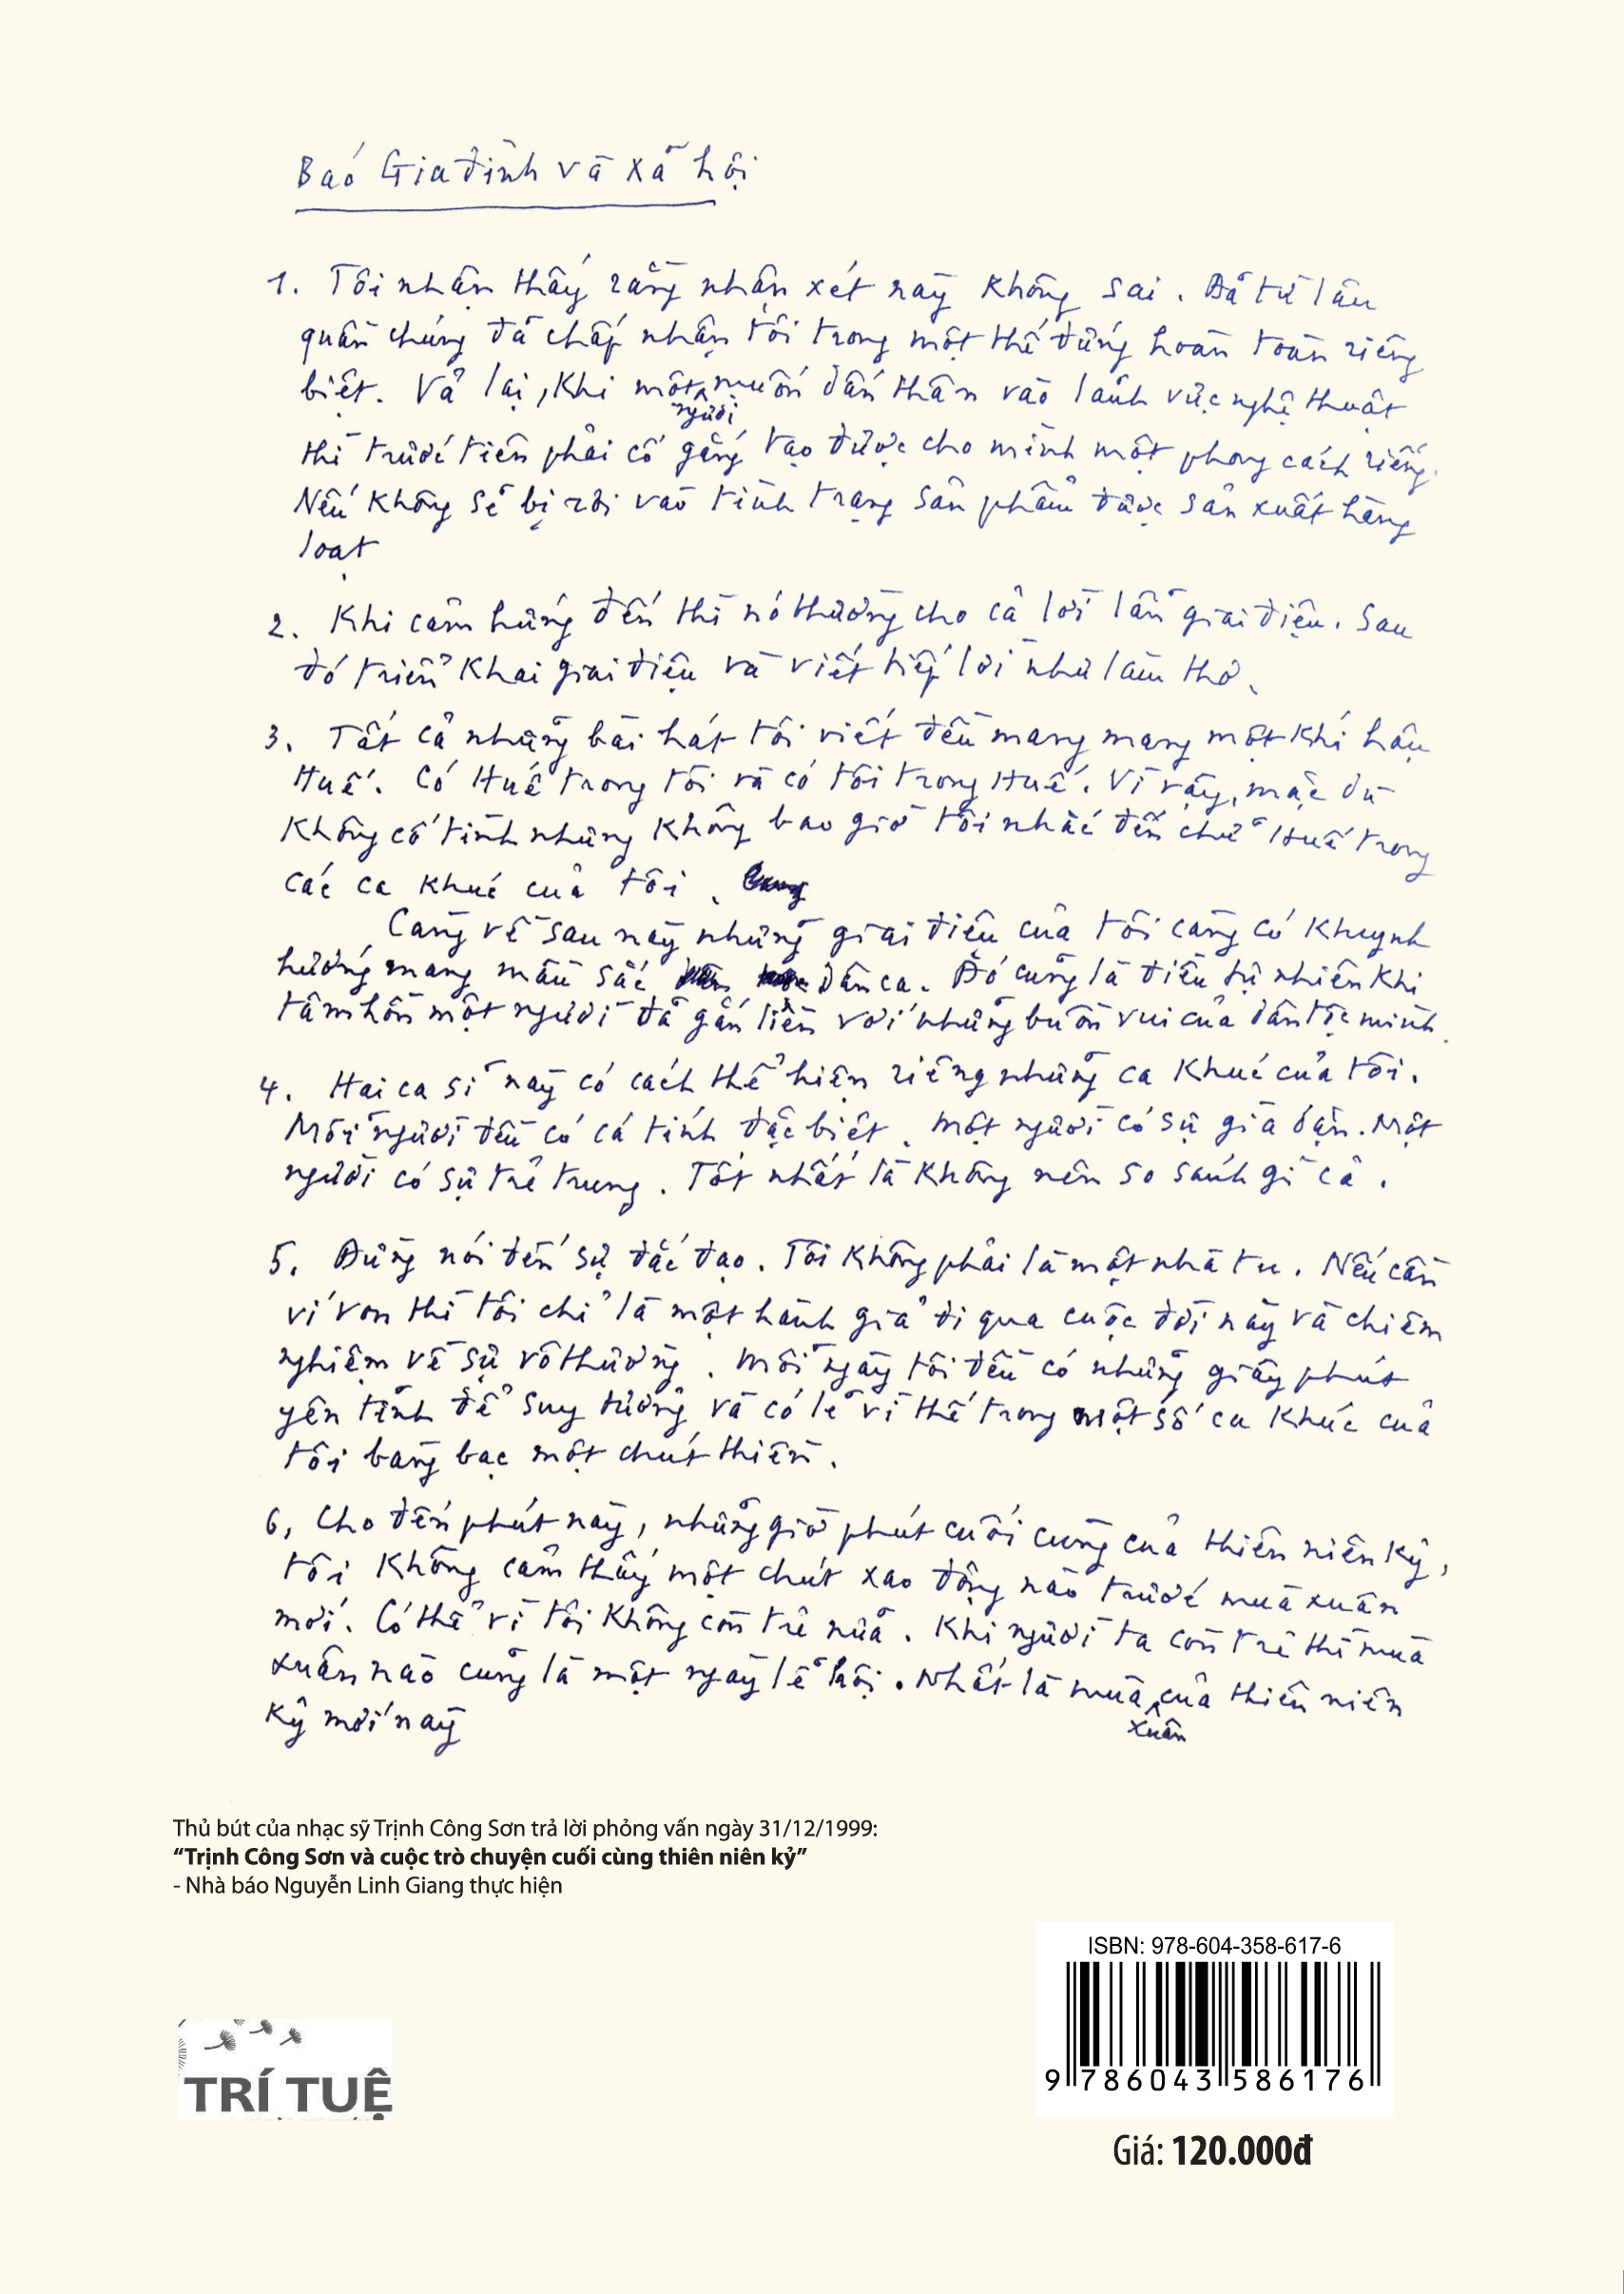 Báo Gia đình và xã hội
1. Tôi nhận thấy rằng nhận xét này không sai. Đã từ lâu
quần chúng đã chấp nhận tôi trong một thế đứng hoàn toàn riêng
biệt. Vả lại, khi một người muốn dấn thân vào lãnh vực nghệ thuật
thì trước tiên phải cố gắng tạo được cho mình một phong cách riêng.
Nếu không sẽ bị rơi vào tình trạng sản phẩm được sản xuất hàng
loạt
2. Khi cảm hứng đến thì nó thường cho cả lời lẫn giai điệu. Sau
đó triển khai giai điệu và viết tiếp lời như làm thơ.
3. Tất cả những bài hát tôi viết đều mang mang một khí hậu
Huế. Có Huế trong tôi và có tôi trong Huế. Vì vậy, mặc dù
không cố tình nhưng không bao giờ tôi nhắc đến chữ Huế trong
các ca khúc của tôi.
Càng về sau này những giai điệu của tôi càng có khuynh
hướng mang màu sắc dân ca. Đó cũng là điều tự nhiên khi
tâm hồn một người đã gắn liền với những buồn vui của dân tộc mình.
4. Hai ca sĩ này có cách thể hiện riêng những ca khúc của tôi.
Mỗi người đều có cá tính đặc biệt. Một người có sự già dặn. Một
người có sự trẻ trung. Tốt nhất là không nên so sánh gì cả.
5. Đừng nói đến sự đắc đạo. Tôi không phải là một nhà tu. Nếu cần
ví von thì tôi chỉ là một hành giả đi qua cuộc đời này và chiêm
nghiệm về sự vô thường. Mỗi ngày tôi đều có những giây phút
yên tĩnh để suy tưởng và có lẽ vì thế trong một số ca khúc của
tôi bàng bạc một chút thiền.
6, Cho đến phút này, những giờ phút cuối cùng của thiên niên kỷ,
tôi không cảm thấy một chút xao động nào trước mùa xuân
mới. Có thể vì tôi không còn trẻ nữa. Khi người ta còn trẻ thì mùa
xuân nào cũng là một ngày lễ hội. Nhất là mùa xuân của thiên niên
kỷ mới này
Thủ bút của nhạc sỹ Trịnh Công Sơn trả lời phỏng vấn ngày 31/12/1999:
“Trịnh Công Sơn và cuộc trò chuyện cuối cùng thiên niên kỷ”
- Nhà báo Nguyễn Linh Giang thực hiện
ISBN: 978-604-358-617-6
9 786043 586176
TRÍ TUỆ
Giá: 120.000đ